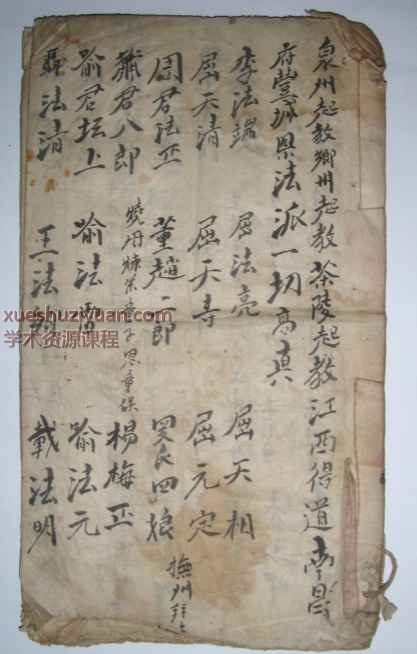 泉州起教鄉州起教茶陵起教江西得道南昌
府豐城縣法派一切高真
李法端 屈法亮 屈天相
屈天清 屈天寺 屈元定
周君法正 董趙二郎 四娘 撫州
蕭君八郎 楊梅正
喻君坛上 喻法 喻法元
聶法清 王法 戴法明
xueshuziyuan.com
学术资源课程